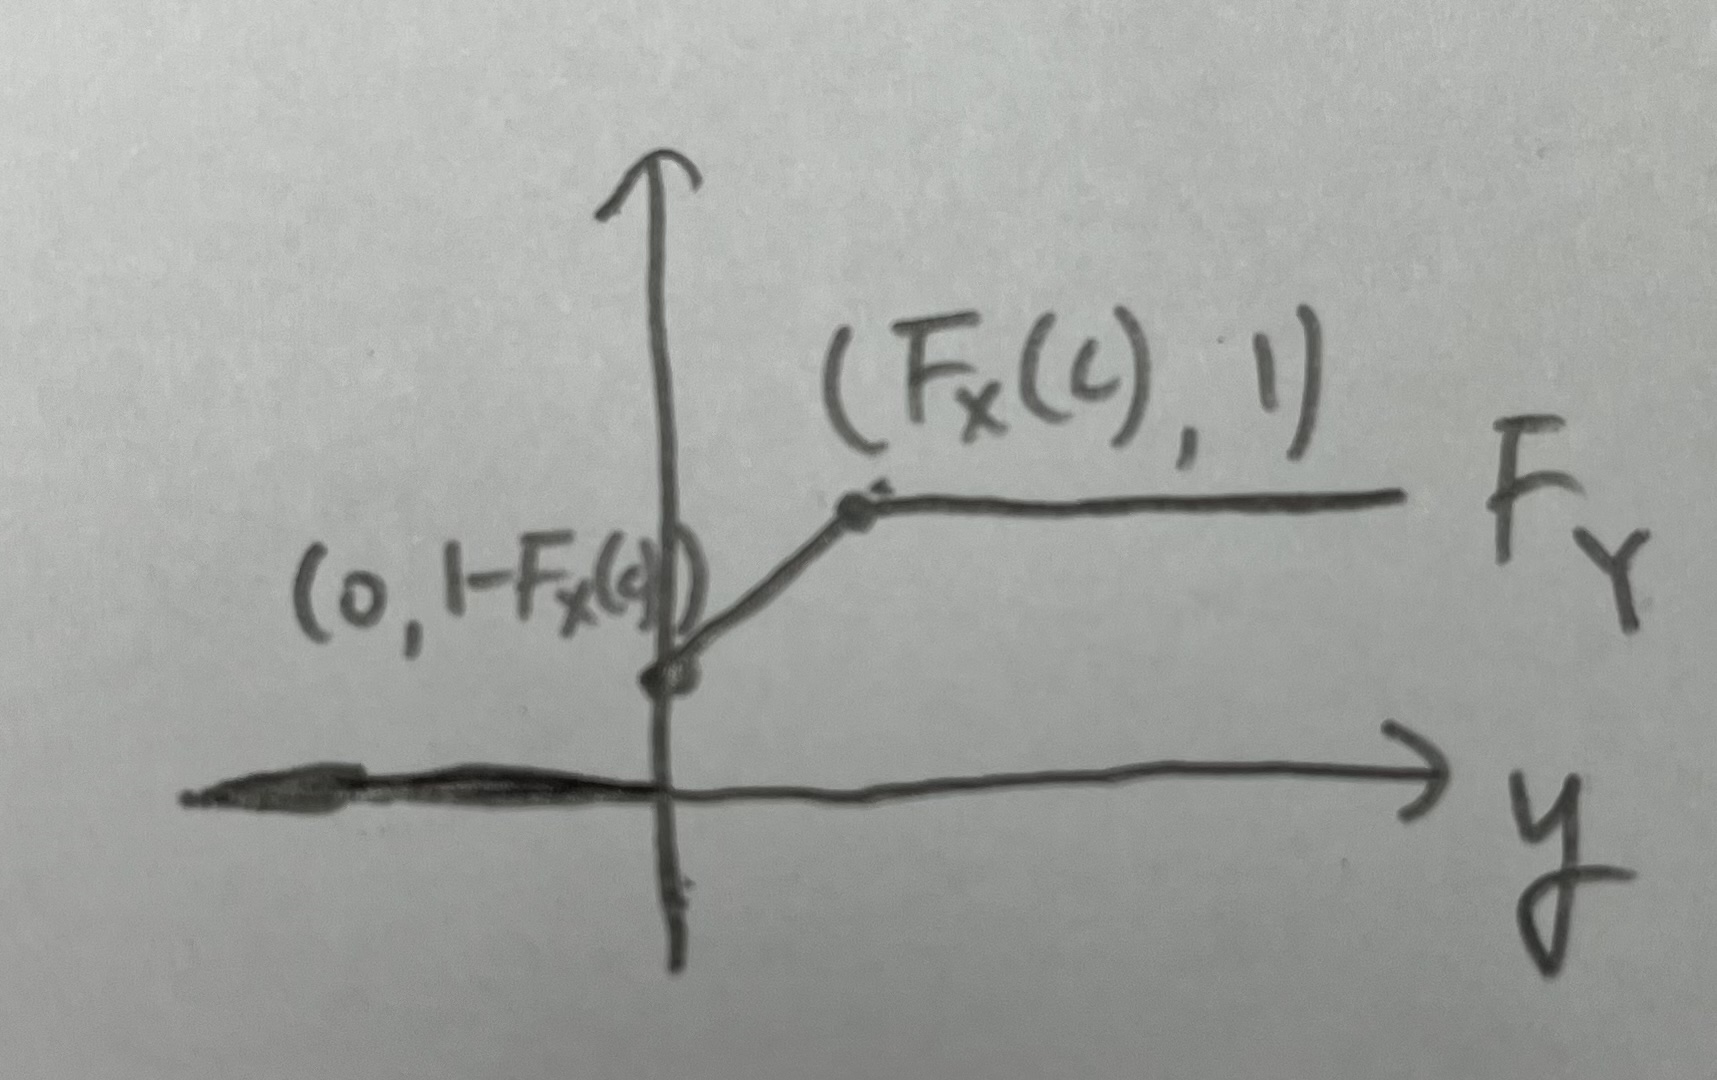 (F_X(c), 1)
F_Y
(0, 1-F_X(c))
y